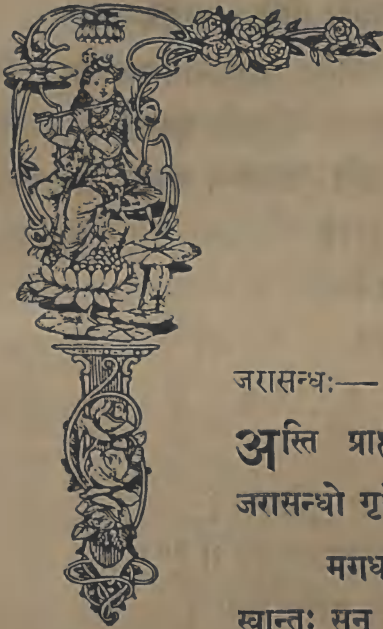 जरासन्धः—
अस्ति
जरासन्धो
मगध
स्वान्तः सन